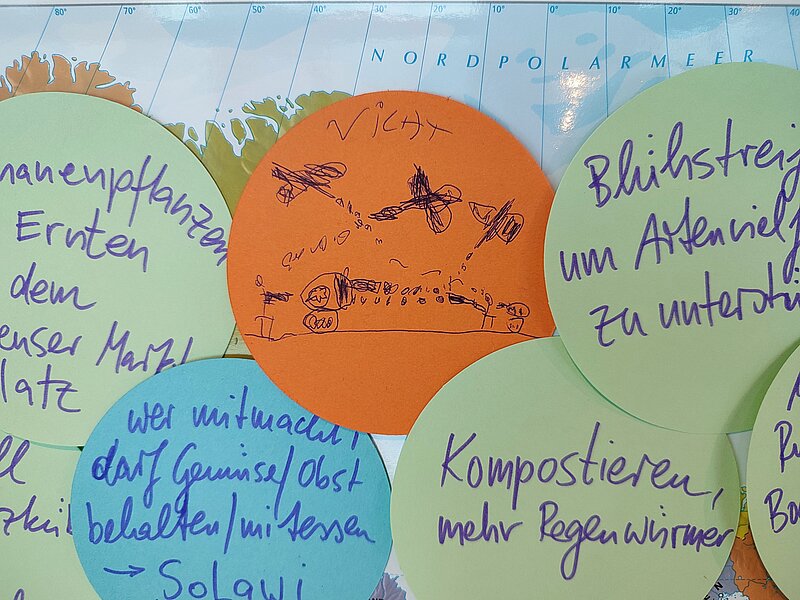 80° 70° 60° 50° 40° 30° 20° 10° 0° 10° 20° 30° 40
NORDPOLARMEER
nanenpflanzen
Ernten
dem
enser Markt
latz
Blühstreif
um Artenvielf
zu unterstü
wer mitmacht,
darf Gemüse/Obst
behalten/mitessen
→ SoLawi
Kompostieren,
mehr Regenwürmer